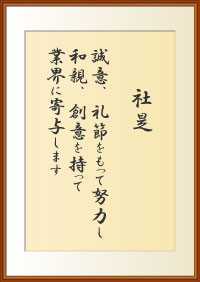 社是
誠意、礼節をもって努力し
和親、創意を持って
業界に寄与します